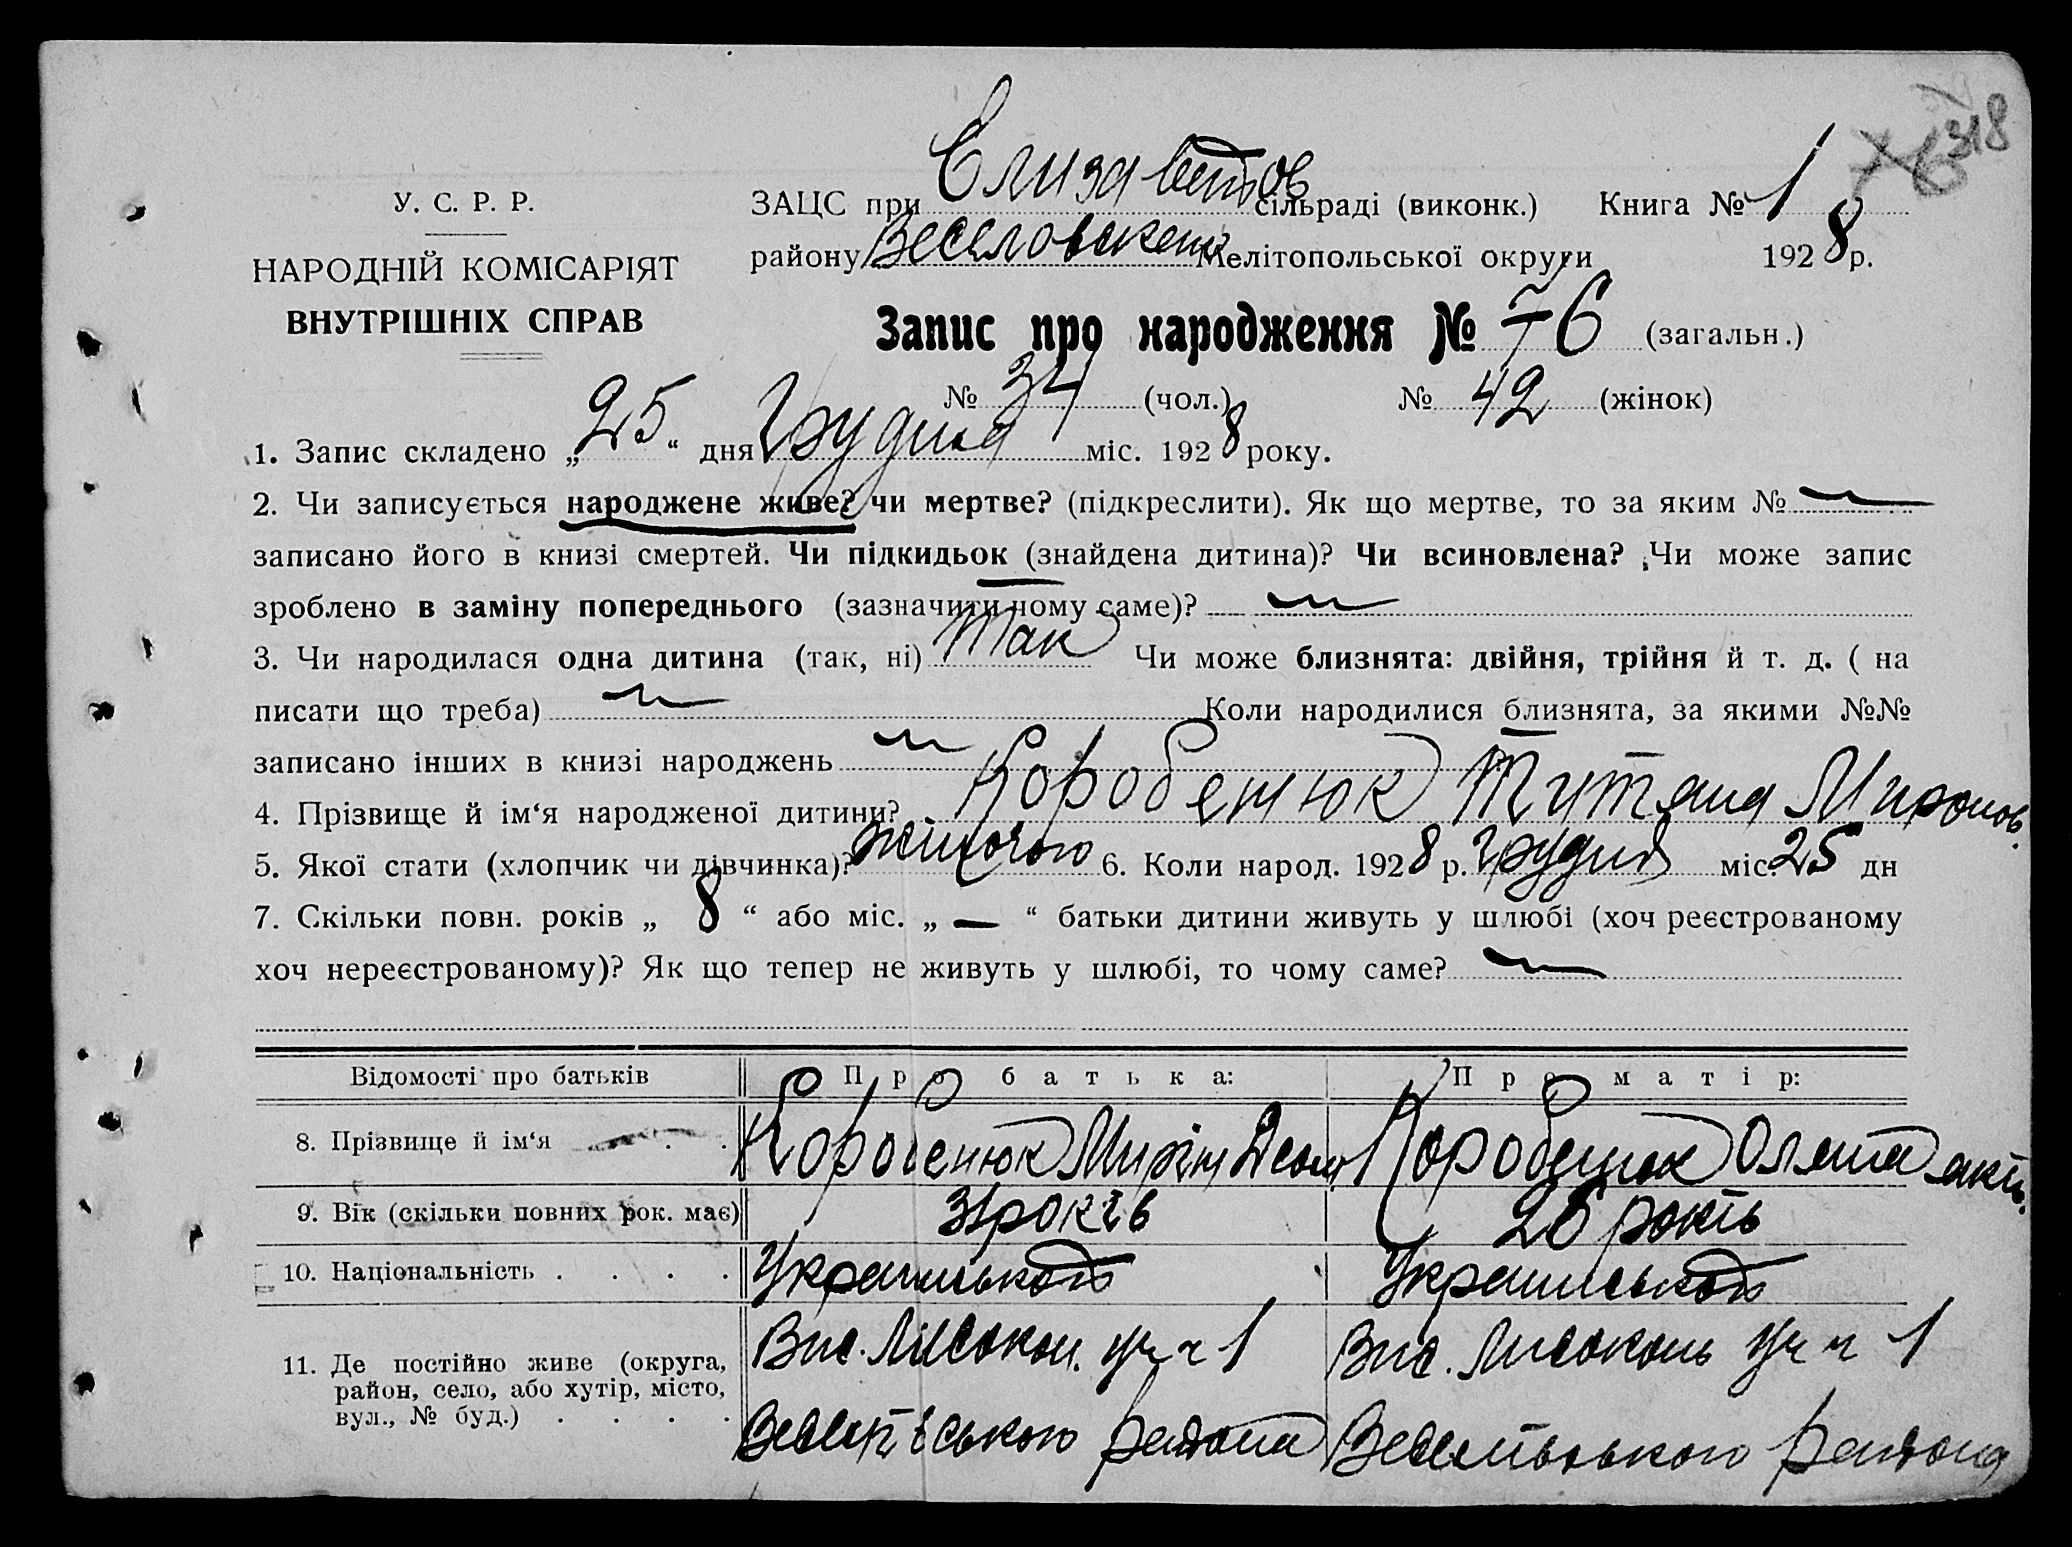 318
У. С. Р. Р.
НАРОДНІЙ КОМІСАРІЯТ
ВНУТРІШНІХ СПРАВ
ЗАЦС при Елизаветов сільраді (виконк.) Книга № 1
району Веселовском Мелітопольської округи 1928 р.
Запис про народження № 76 (загальн.)
№ 34 (чол.) № 42 (жінок)
1. Запис складено „25“ дня Грудня міс. 1928 року.
2. Чи записується народжене живе? чи мертве? (підкреслити). Як що мертве, то за яким №
записано його в книзі смертей. Чи підкидьок (знайдена дитина)? Чи всиновлена? Чи може запис
зроблено в заміну попереднього (зазначити чому саме)?
3. Чи народилася одна дитина (так, ні) Так Чи може близнята: двійня, трійня й т. д. ( на
писати що треба) Коли народилися близнята, за якими №№
записано інших в книзі народжень
4. Прізвище й ім‘я народженої дитини? Коробенюк Тутяна Миронов.
5. Якої стати (хлопчик чи дівчинка)? жіночою 6. Коли народ. 1928 р. Грудня міс. 25 дн
7. Скільки повн. років „ 8 “ або міс. „ — “ батьки дитини живуть у шлюбі (хоч реєстрованому
хоч нереєстрованому)? Як що тепер не живуть у шлюбі, то чому саме?
Відомості про батьків Про батька: Про матір:
8. Прізвище й ім‘я . . Коробенюк Мирін Коробенюк Оляна
9. Вік (скільки повних рок. має) 31 років 26 років
10. Національність . . . . Украиньського Украиньського
11. Де постійно живе (округа, Вис. Лисокон. уч ч 1 Вис. Лисоконь уч ч 1
район, село, або хутір, місто,
вул., № буд.) . . . . Веселівського района Веселівського района